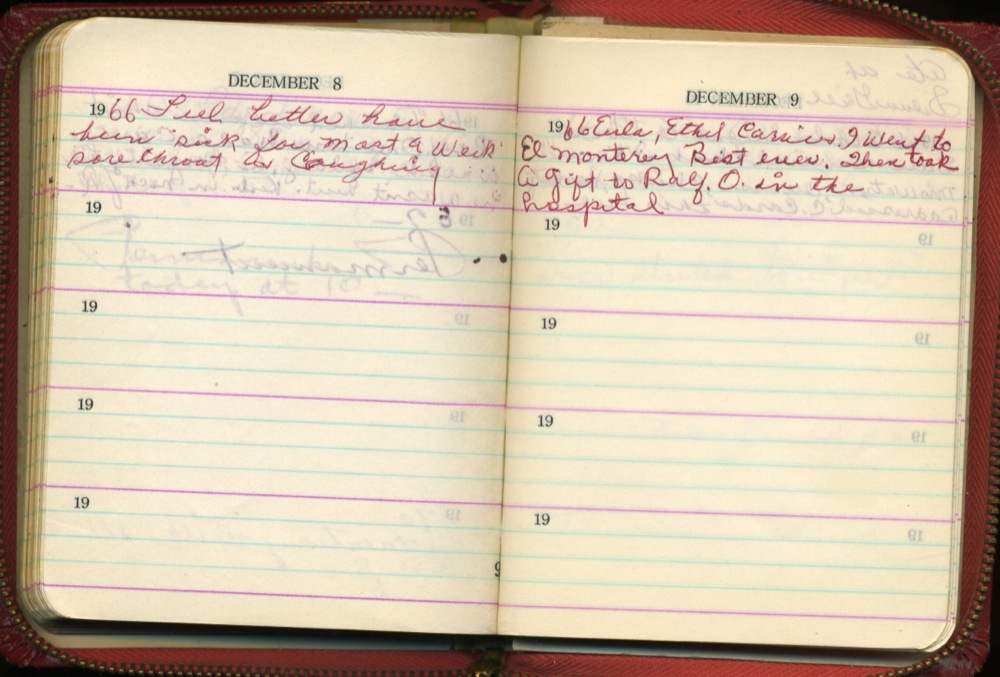 DECEMBER 8
1966 Feel better have
been sick for most a week
sore throat & Coughing
19
19
19
19
DECEMBER 9
1966 Eula, Ethel Carrie & I went to
El Monterey Best ever. Then took
a gift to Ralf. O. in the
hospital
19
19
19
19